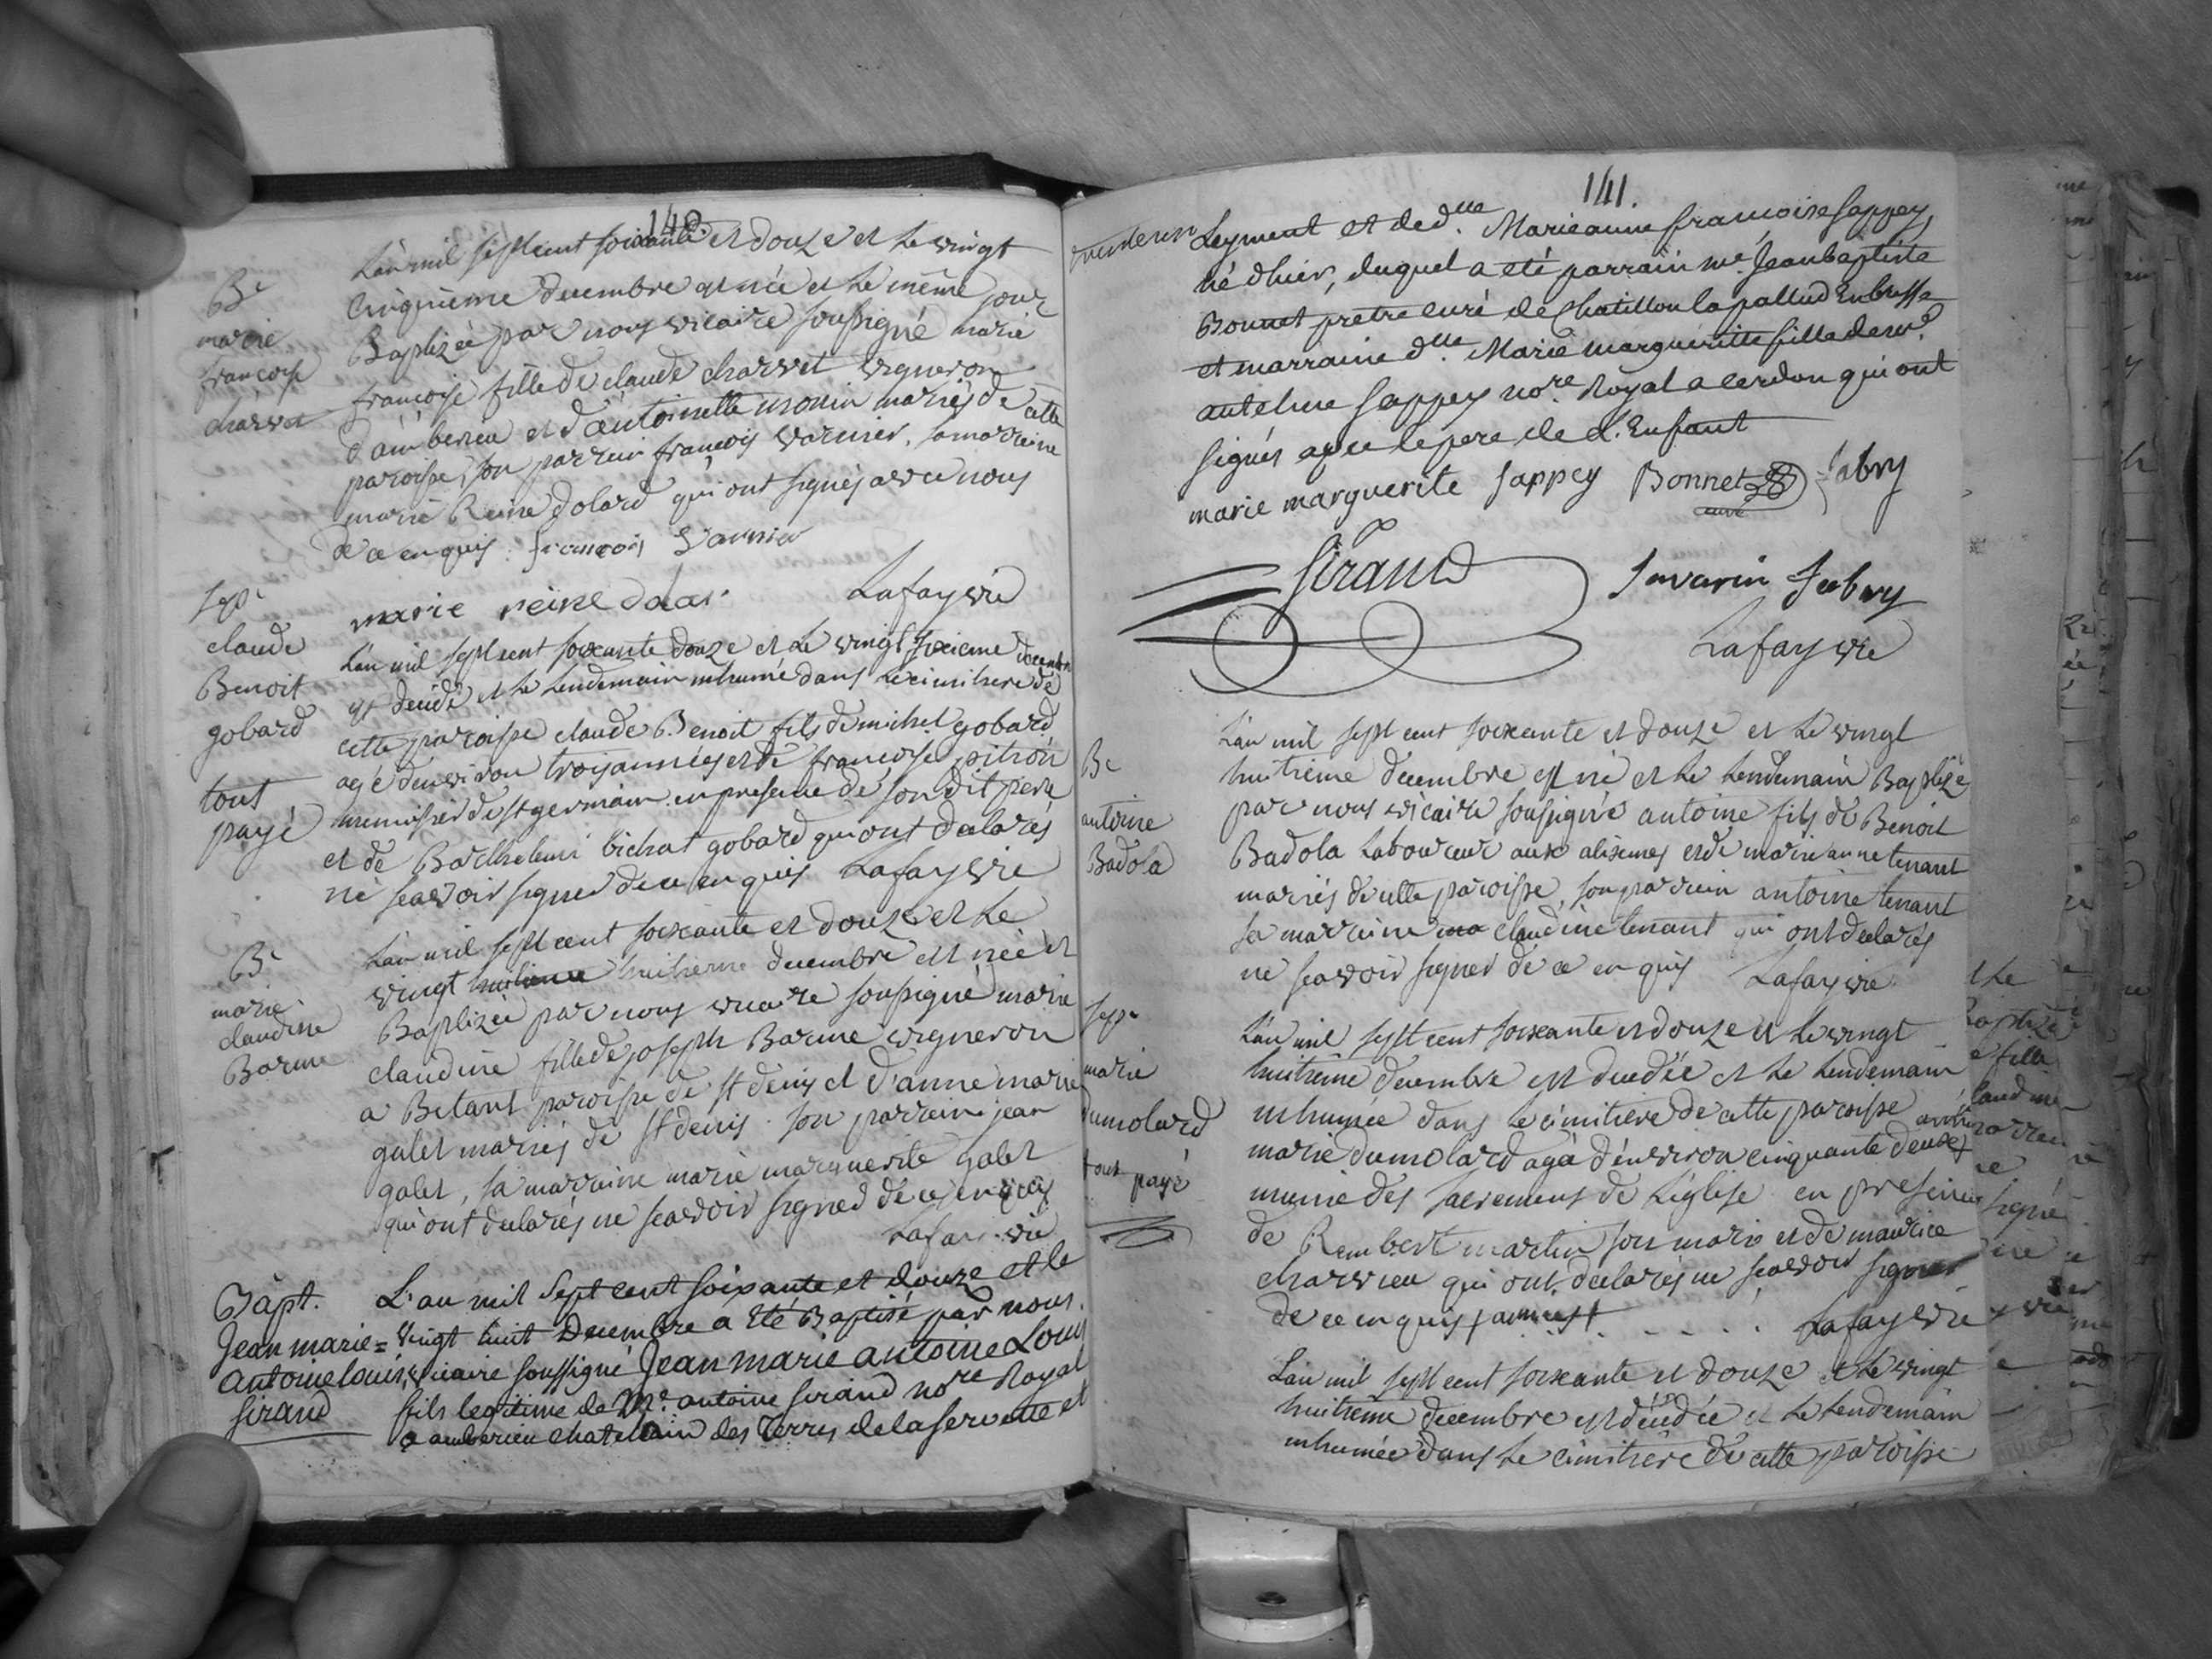 140.
B.e
marie
francoise
charvet
L'an mil sept cent soixante et douze et le vingt
cinquieme decembre est née et le même jour
Baptizée par nous vicaire soussigné marie
francoise fille de claude charvet vigneron
d'amberieu et d'antoinette monin mariés de cette
paroisse, son parrain francois varnier, sa marraine
marie Reine dolard qui ont signés avec nous
de ce enquis francois Varnier
marie reine dolar Lafay vic
sep.
claude
Benoit
gobard
tout
payé
L'an mil sept cent soixante douze et le vingt sixieme decembre
est decedé et le lendemain inhumé dans le cimitiere de
cette paroisse claude Benoit fils de michel gobard
agé d'environ trois années et de francoise pitron
menuisier de st germain en presence de son dit pere
et de Barthelemi bichat gobard qui ont declarés
ne scavoir signer de ce enquis Lafay vic
B.e
marie
claudine
Barme
L'an mil sept cent soixante et douze et le
vingt huitieme decembre est née et
Baptizée par nous vicaire soussigné marie
claudine fille de joseph Barme vigneron
a Betant paroisse de st denis et d'anne marie
galet mariés de st denis. son parrain jean
galet, sa marraine marie marguerite galet
qui ont declarés ne scavoir signer de ce enquis
Lafay vic
Bapt.
Jean marie =
antoine louis
sirand
L'an mil sept cent soixante et douze et le
vingt huit Decembre a eté Baptisé par nous
vicaire soussigné Jean marie antoine Louis
fils legitime de M.e antoine sirand no.re Royal
a amberieu chatelain des Terres de la servette et
141.
Leyment et de d.lle Marieanne francoise sappey
né d'hier, duquel a eté parrain m.e Jeanbaptiste
Bonnet pretre curé de Chatillon la pallud en bresse
et marraine d.lle Marie margueritte fille de m.e
antelme sappey no.re Royal a cerdon qui ont
signés avec le pere de l'Enfant
marie marguerite sappey Bonnet curé fabry
Sirand Savarin fabry
Lafay vic
B.e
antoine
Badola
L'an mil sept cent soixante et douze et le vingt
huitieme decembre est né et le lendemain Baptizé
par nous vicaire soussigné antoine fils de Benoit
Badola Laboureur aux alixmes et de marie anne tenant
mariés de cette paroisse, son parrain antoine tenant
sa marraine claudine tenant qui ont declarés
ne scavoir signer de ce enquis Lafay vic
sep.
marie
dumolard
tout payé
L'an mil sept cent soixante et douze et le vingt
huitieme decembre est decedée et le lendemain
inhumée dans le cimitiere de cette paroisse
marie dumolard agé d'environ cinquante deux
munie des sacrements de l'église en presence
de Rembert martin son mari et de maurice
charvieu qui ont declarés ne scavoir signer
de ce enquis Lafay vic
L'an mil sept cent soixante et douze et le vingt
huitieme decembre est decedée et le lendemain
inhumée dans le cimitiere de cette paroisse